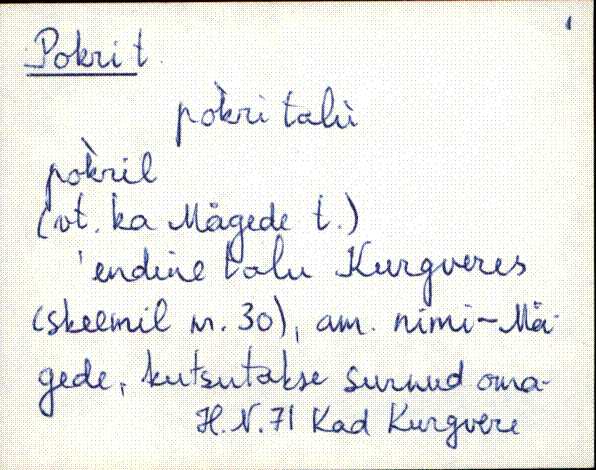 Pokri t.
pòkri talù
pòkril
(vt. ka Mägede t.)
'endine talu Kurgveres
(skeemil nr. 30), am. nimi - Mä-
gede, kutsutakse surnud oma-
H. N. 71 Kad Kurgvere